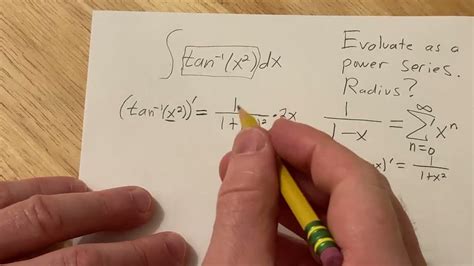 ∫ tan⁻¹(x²) dx
Evaluate as a
power series.
Radius?
(tan⁻¹(x²))' = 1/1+ ² · 2x
1/1-x = ∞∑n=0 xⁿ
x)' = 1/1+x²